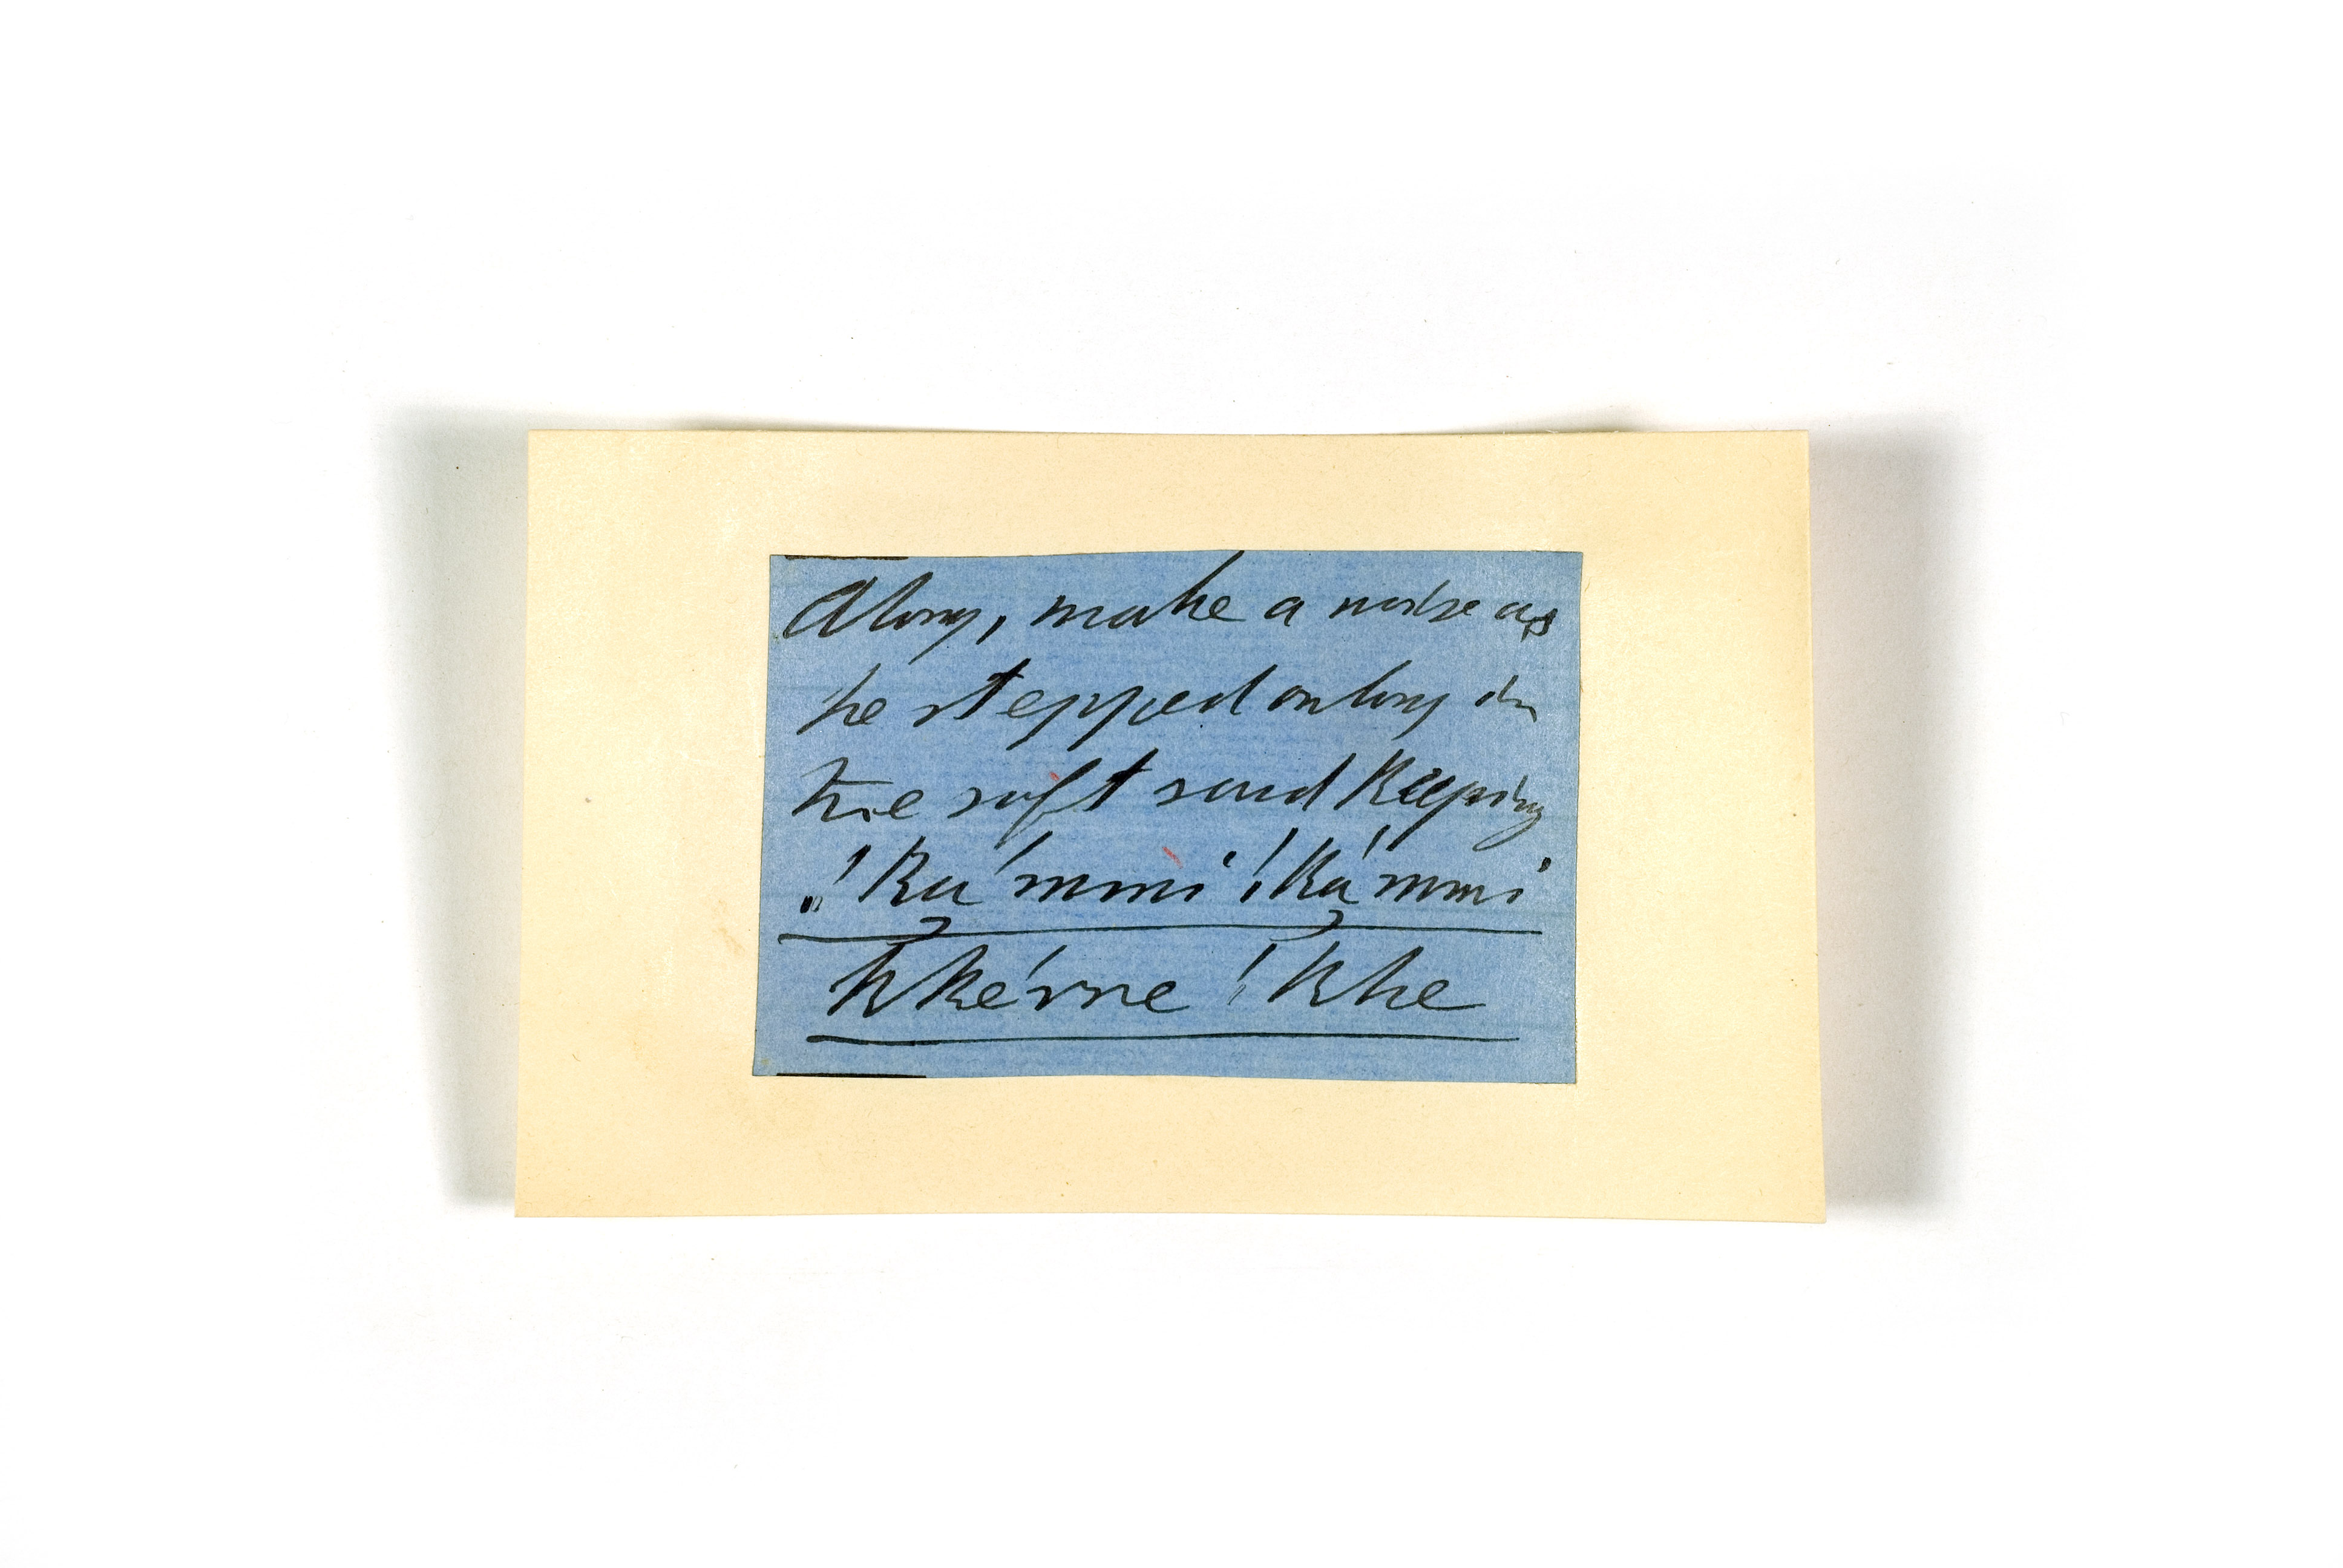 Along, make a noise as
he stepped onlong in
the soft sand keeping
"!Ka̡´mmi !Ka̡´mmi
k̔ke´rre !khe